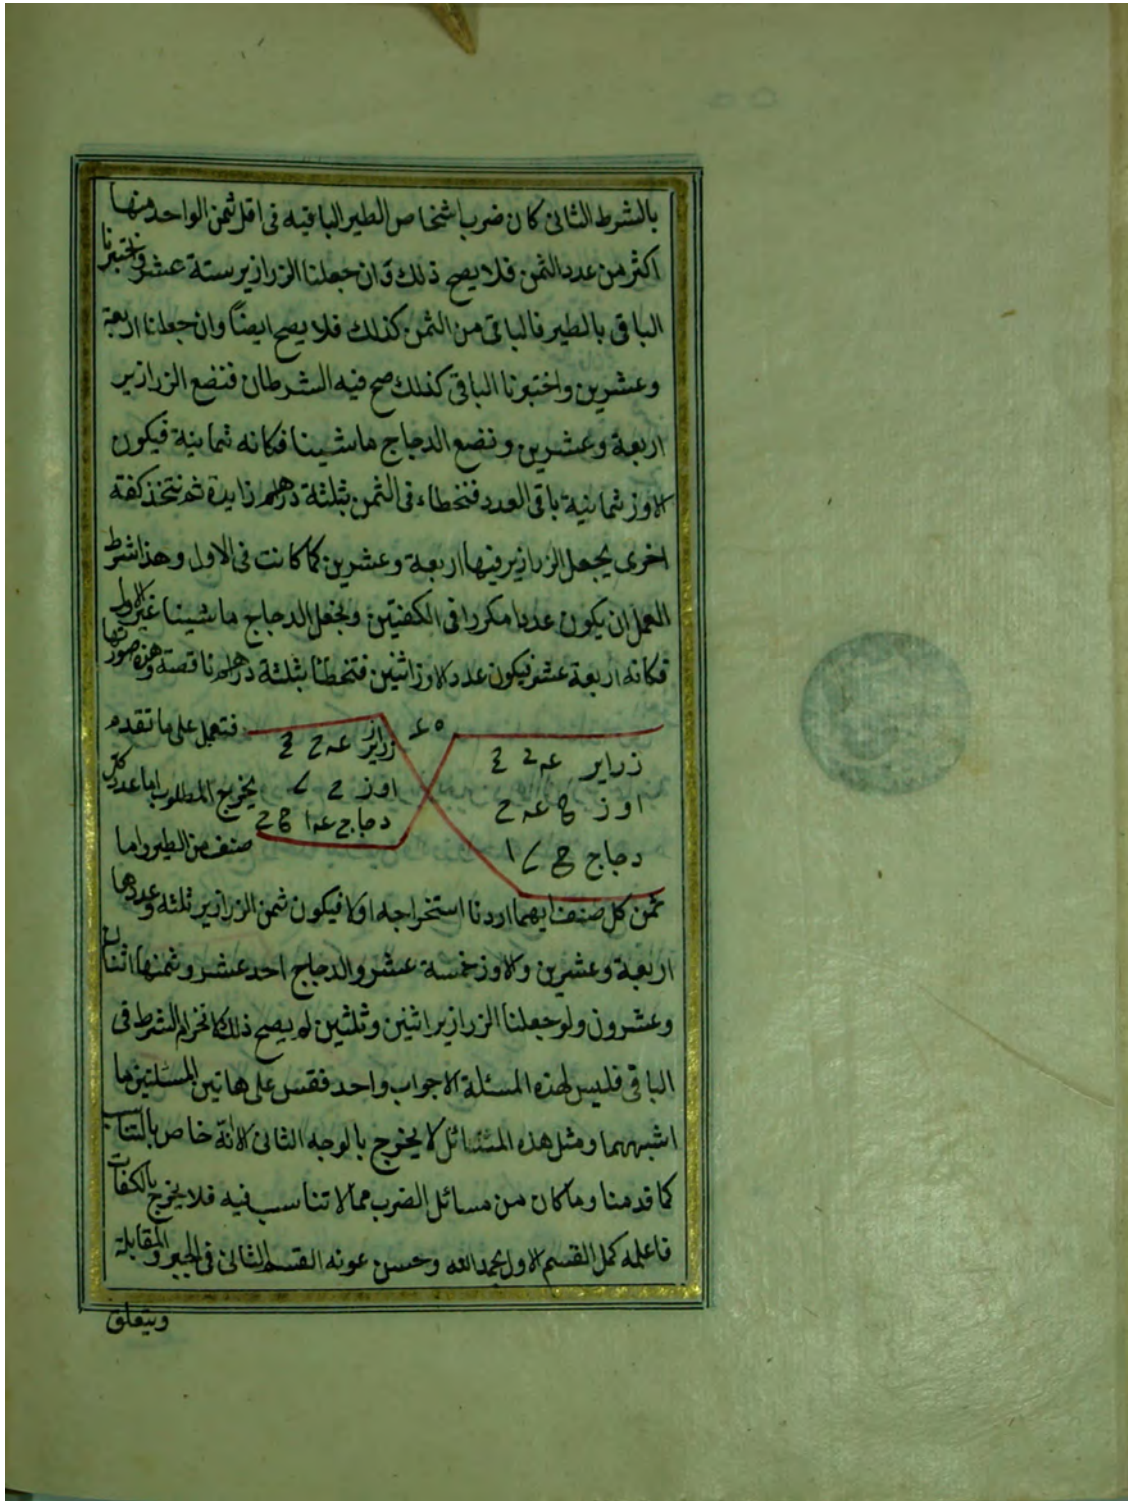 بالشرط الثانى كان ضرب اشخاص الطير الباقيه فى اقل ثمن الواحد منها
اكثر من عدد الثمن فلا يصح ذلك وان جعلنا الزرازير ستة عشر واختبرنا
الباقى بالطير فالباقى من الثمن كذلك فلا يصح ايضاً وان جعلنا اربعة
وعشرين واختبرنا الباقى كذلك صح فيه الشرطان فنضع الزرازير
اربعة وعشرين ونضع الدجاج ما شينا فكانه ثمانية فيكون
الاوز ثمانية باقى العدد فنخطاء فى الثمن بثلثة دراهم زايدة ثم نتخذ كفة
اخرى يجعل الزرازير فيها اربعة وعشرين كما كانت فى الاول وهذا شرط
العمل ان يكون عددا مكررا فى الكفتين ونجعل الدجاج ما شينا غير الاول
فكانه اربعة عشر فيكون عدد الاوز اثنين فتخطأ بثلثة دراهم ناقصة وهذه صورتها
فتعمل على ما تقدم
زراير
زرازير
اوز
اوز
يخرج المطلوب اما عدد كل
دجاج
دجاج
صنف من الطير واما
ثمن كل صنف ايهما اردنا استخراجه اولا فيكون ثمن الزرازير ثلثه وعددها
اربعة وعشرين والاوز خمسة عشر والدجاج احد عشر وثمنها اثنان
وعشرون ولو جعلنا الزرازير اثنين وثلثين لم يصح ذلك لانخرام الشرط فى
الباقى فليس لهذه المسئلة الا جواب واحد فقس على هاتين المسئلتين ما
اشبههما ومثل هذه المسائل لا يخرج بالوجه الثانى لانه خاص بالتناسب
كما قدمنا وما كان من مسائل الضرب مما لا تناسب فيه فلا يخرج بالكفات
فاعلمه كمل القسم الاول بحمد الله وحسن عونه القسم الثانى فى الجبر والمقابلة
ويتعلق